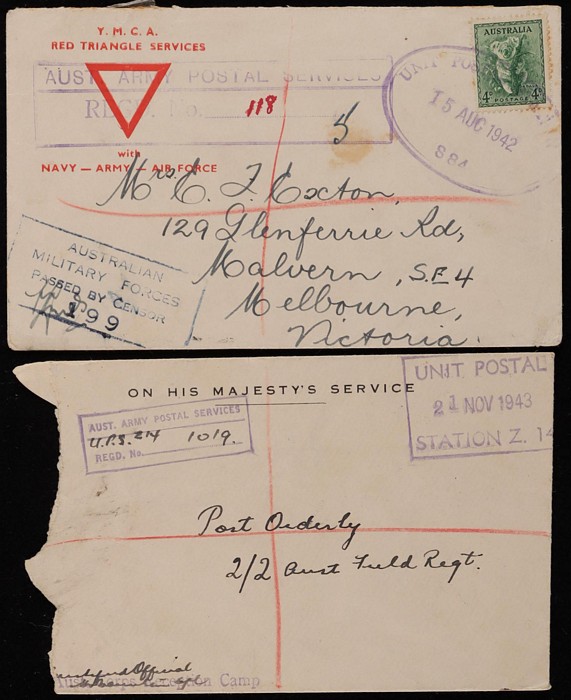 Y. M. C. A.
RED TRIANGLE SERVICES
AUST. ARMY POSTAL SERVICES
REGD. No. 118
with
NAVY — ARMY — AIR FORCE
5
AUSTRALIA
4D POSTAGE 4D
UNIT
15 AUG 1942
Mrs. C. F. Exton,
129 Glenferrie Rd,
Malvern, S.E 4
Melbourne,
Victoria.
AUSTRALIAN
MILITARY FORCES
PASSED BY CENSOR
199
ON HIS MAJESTY'S SERVICE
AUST. ARMY POSTAL SERVICES
U.P.S. 214 1019.
REGD. No.
UNIT POSTAL
21 NOV 1943
STATION Z. 14
Post Orderly
2/2 Aust Field Regt.
Official
Camp